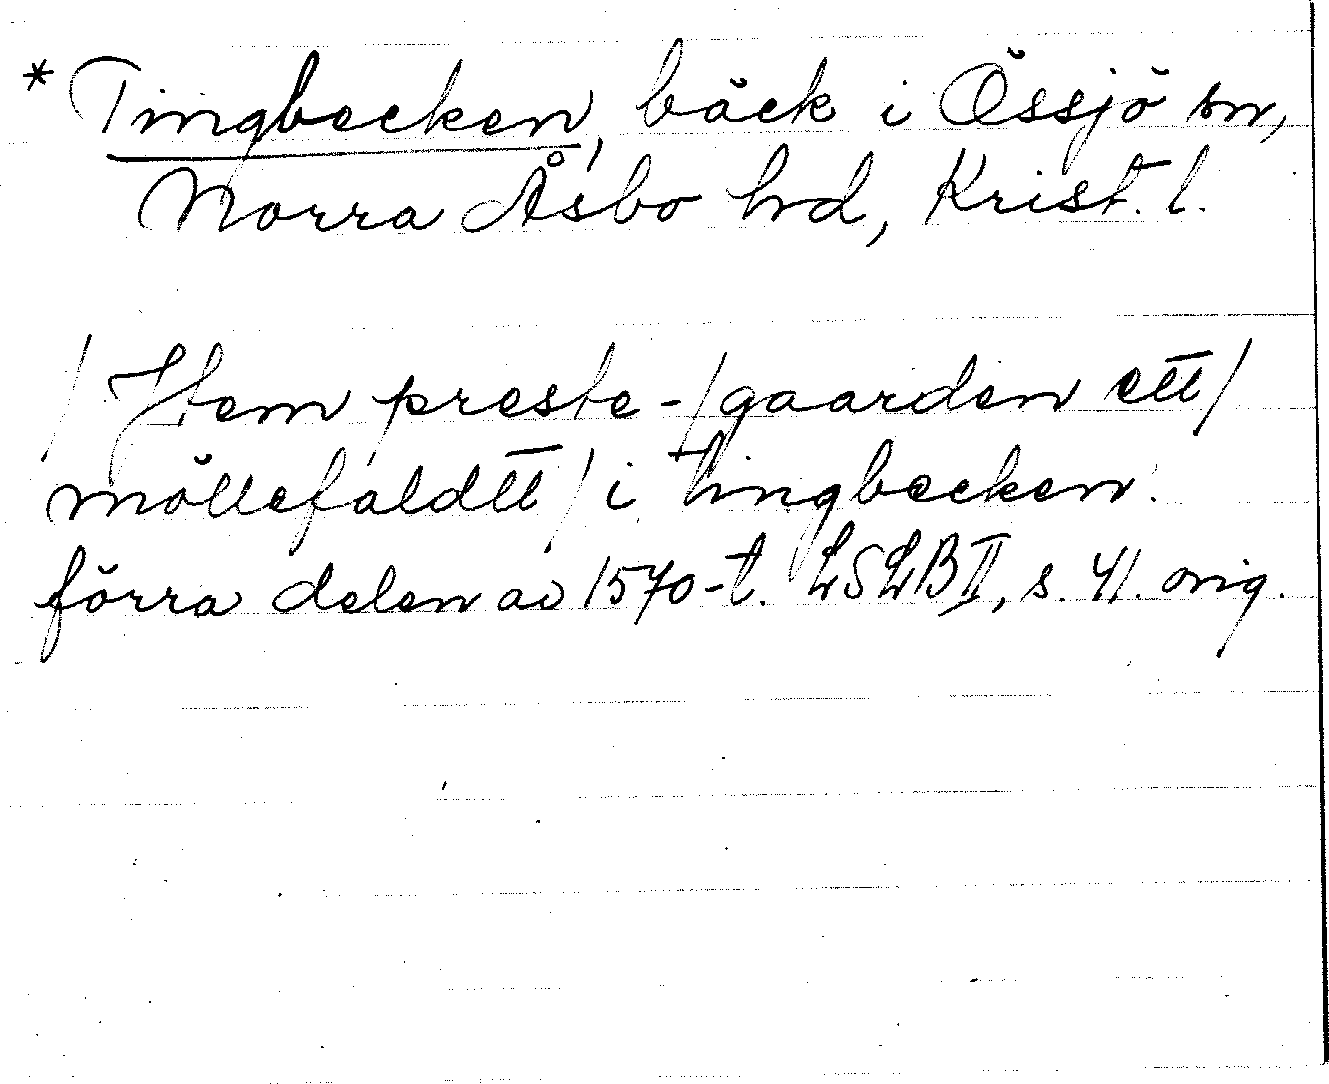 * Tingbecken, bäck i Össjö sn,
Norra Åsbo hd, Krist. l.
/ Item preste-/gaarden ett /
möllefaldtt / i tingbecken.
förra delen av 1570-t. LSLB II, s. 41. orig.